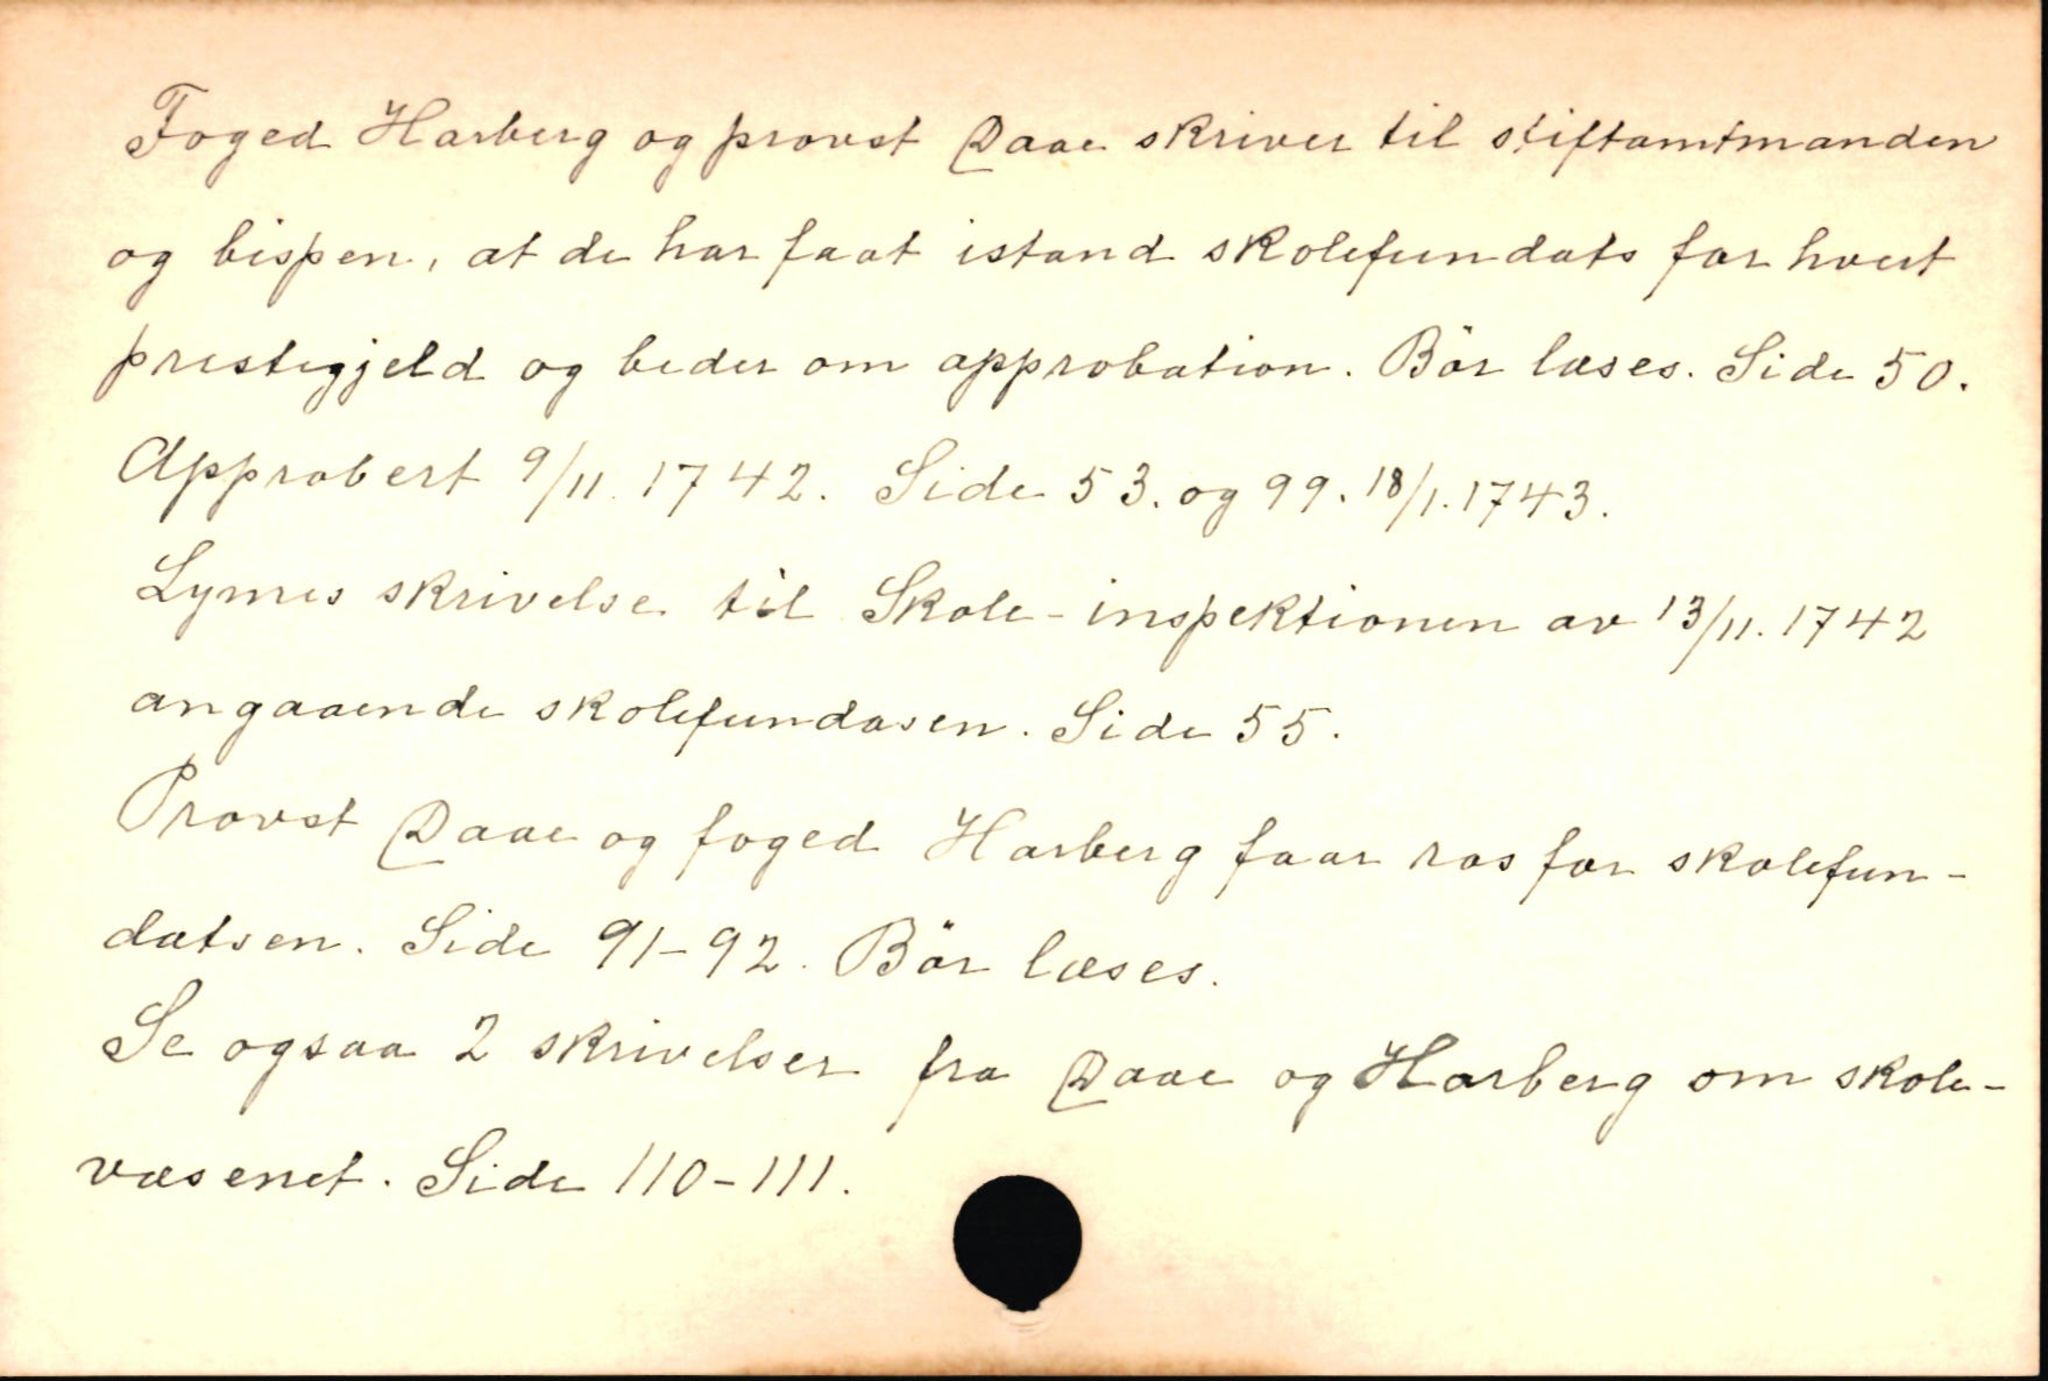 Foged Harberg og provst Daae skriver til stiftamtmanden
og bispen, at de har faat istand skolefundats for hvert
prestegjeld og beder om approbation. Bör læses. Side 50.
Approbert 9/11. 1742. Side 53. og 99. 18/1. 1743.
Lymes skrivelse til Skole-inspektionen av 13/11. 1742
angaaende skolefundasen. Side 55.
Provst Daae og foged Harberg faar ros for skolefun-
datsen. Side 91-92. Bör læses.
Se ogsaa 2 skrivelser fra Daae og Harberg om skole-
væsenet. Side 110-111.